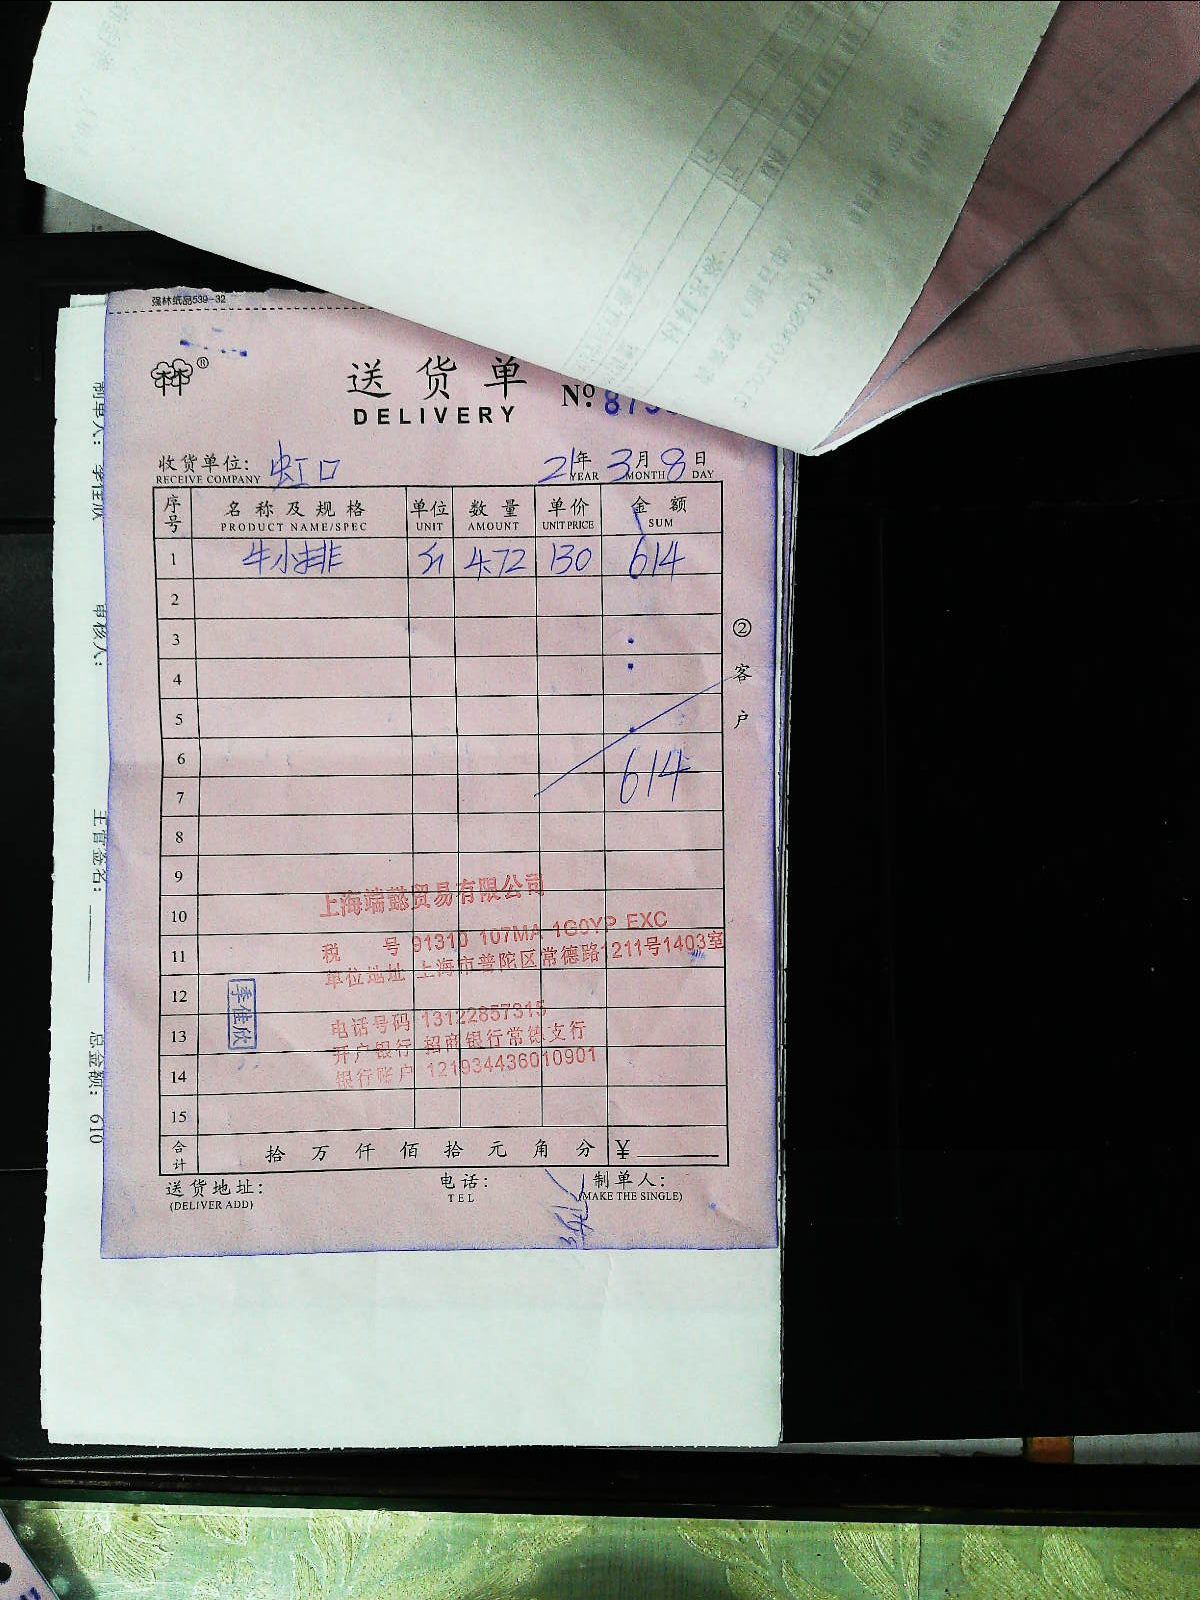 强林纸品539-32
送货单
DELIVERY
№ 879
收货单位: 虹口 21年 3月 8日
RECEIVE COMPANY YEAR MONTH DAY
序号 名称及规格 单位 数量 单价 金额
PRODUCT NAME/SPEC UNIT AMOUNT UNIT PRICE SUM
1 牛小排 斤 4.72 130 614
2
3
4
5
6
614
7
8
9
10
11
12
13
14
15
② 客户
上海端懿贸易有限公司
税 号 91310 107MA 1G0YP EXC
单位地址 上海市普陀区常德路1211号1403室
电话号码 13122857315
开户银行 招商银行常德支行
银行账户 121934436010901
季佳欣
合计 拾 万 仟 佰 拾 元 角 分 ¥
送货地址: 电话: 制单人:
(DELIVER ADD) TEL (MAKE THE SINGLE)
制单人: 季佳欣
审核人:
主官签名:
总金额: 610